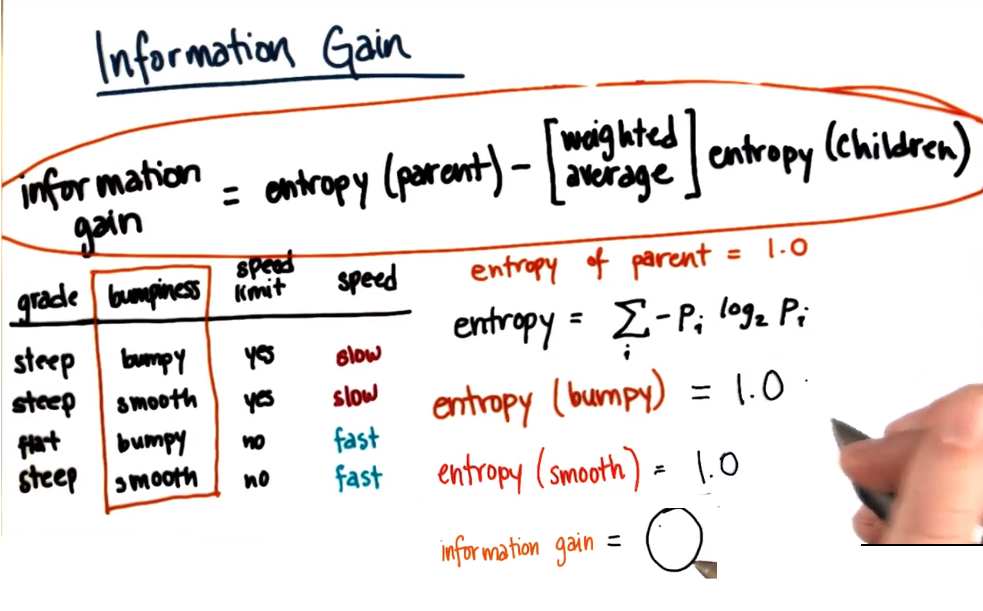 Information Gain
information gain = entropy (parent) - [weighted average] entropy (children)
grade bumpiness speed limit speed
steep bumpy yes slow
steep smooth yes slow
flat bumpy no fast
steep smooth no fast
entropy of parent = 1.0
entropy = ∑ᵢ -Pᵢ log₂ Pᵢ
entropy (bumpy) = 1.0
entropy (smooth) = 1.0
information gain = 0